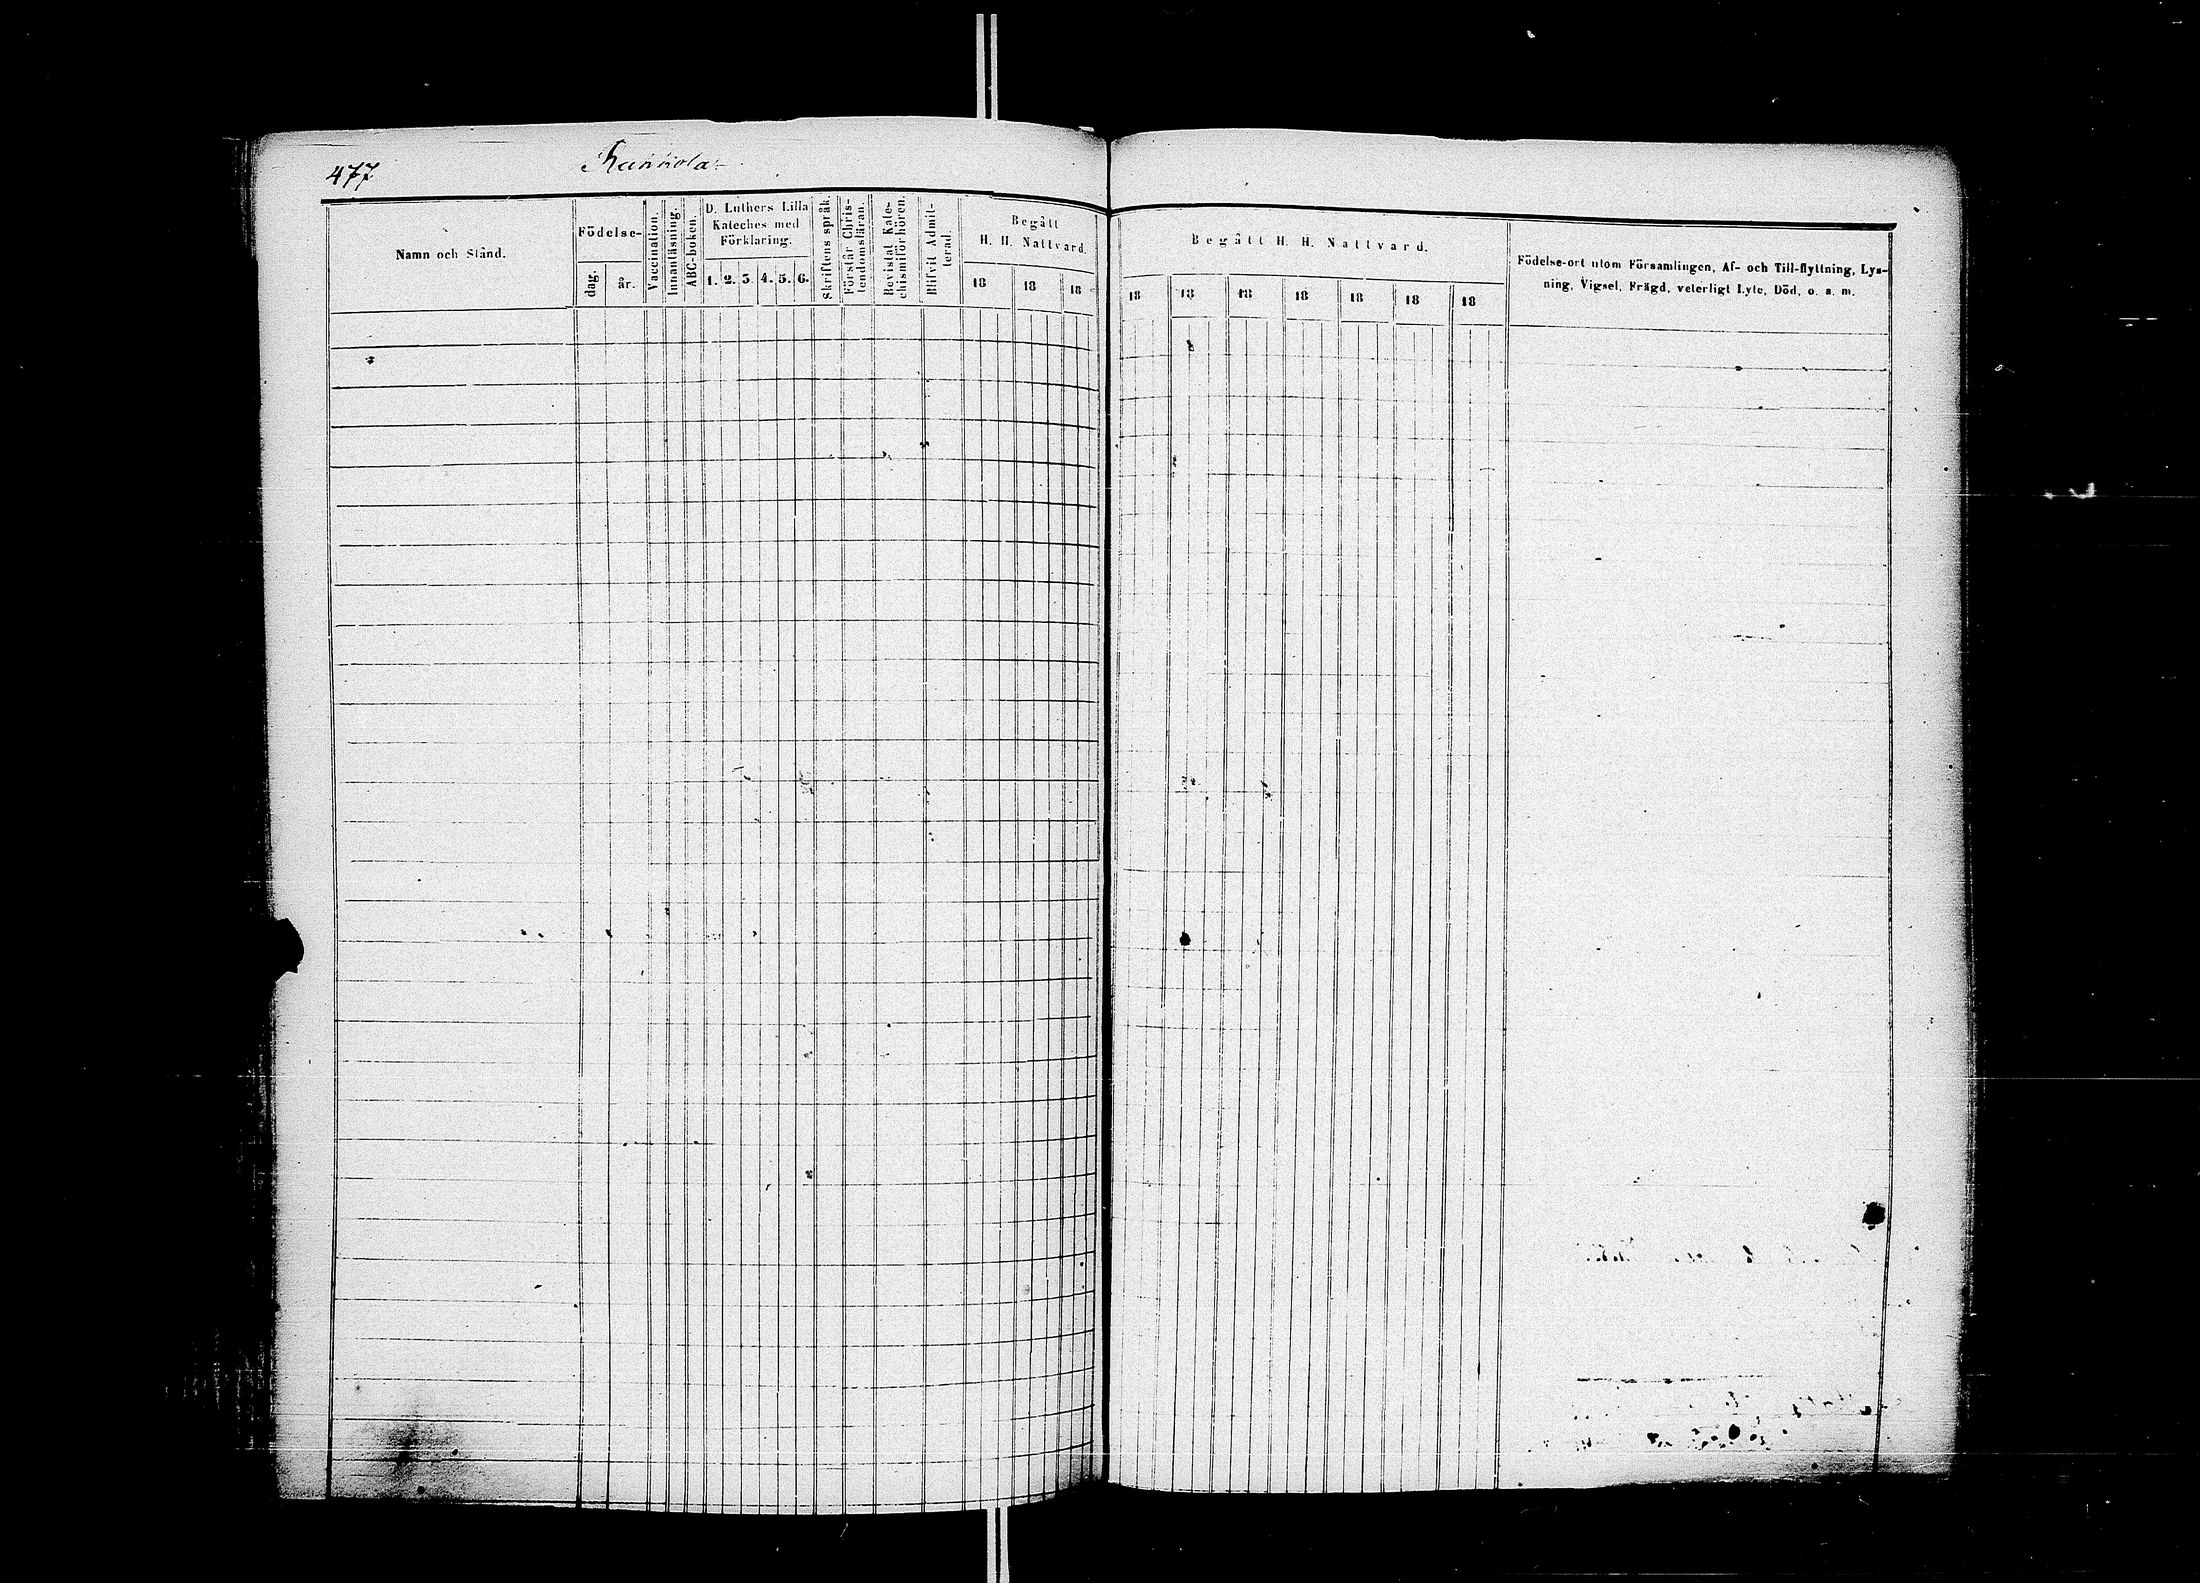 477
Namn och Stånd.
Födelse-
dag.
år.
Vaccination.
Innanläsning.
ABC-boken.
D. Luthers Lilla
Kateches med
Förklaring.
1. 2. 3. 4. 5. 6.
Skriftens språk.
Förstår Chris-
tendomsläran.
Bevistat Kate-
chismiförhören.
Blifvit Admit-
terad.
Begått
H. H. Nattvard.
18 18 18
Begått H. H. Nattvard.
18 18 18 18 18 18 18
Födelse-ort utom Församlingen, Af- och Till-flyttning, Lys-
ning, Vigsel, Frägd, veterligt Lyte, Död, o. a. m.